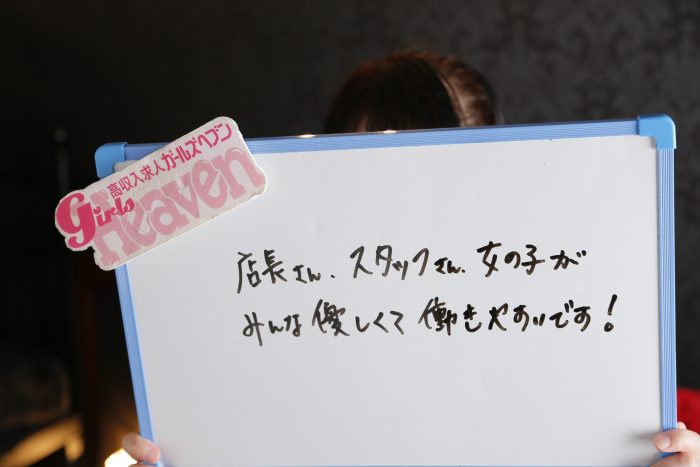 高収入求人ガールズヘブン
girls
Heaven
店長さん、スタッフさん、女の子が
みんな優しくて働きやすいです!